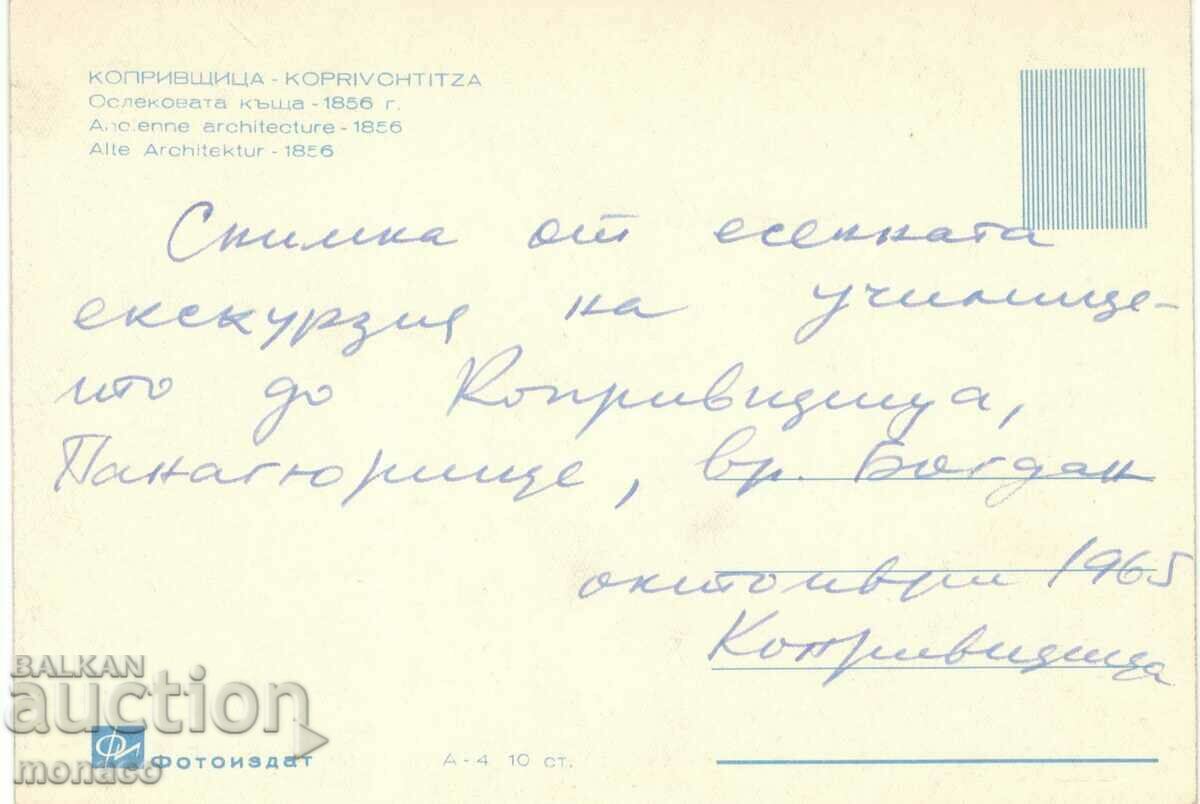 КОПРИВЩИЦА - KOPRIVCHTITZA
Ослековата къща - 1856 г.
Ancienne architecture - 1856
Alte Architektur - 1856
Снимка от есенната
екскурзия на училище-
то до Копривщица,
Панагюрище, вр. Богдан
октомври 1965
Копривщица
BALKAN
auction
monaco
Фотоиздат
А-4 10 ст.